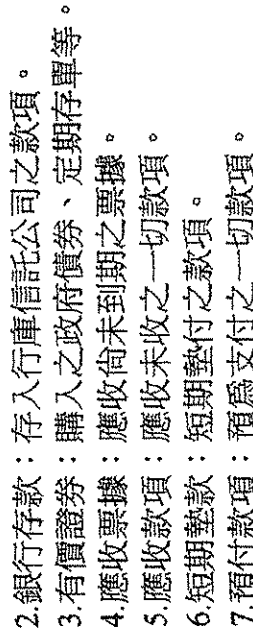 2.銀行存款：存入行庫信託公司之款項。
3.有價證券：購入之政府債券、定期存單等。
4.應收票據：應收尚未到期之票據。
5.應收款項：應收未收之一切款項。
6.短期墊款：短期墊付之款項。
7.預付款項：預為支付之一切款項。